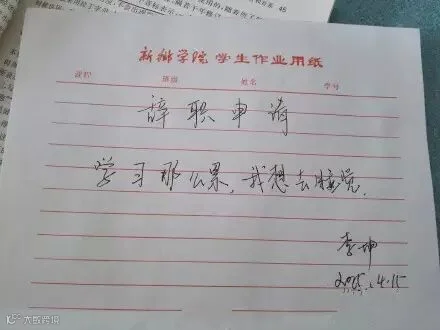 新乡学院 学生作业用纸
课程 班级 姓名 学号
辞职申请
学习那么累,我想去睡觉.
李坤
2025.4.15
大数跨境